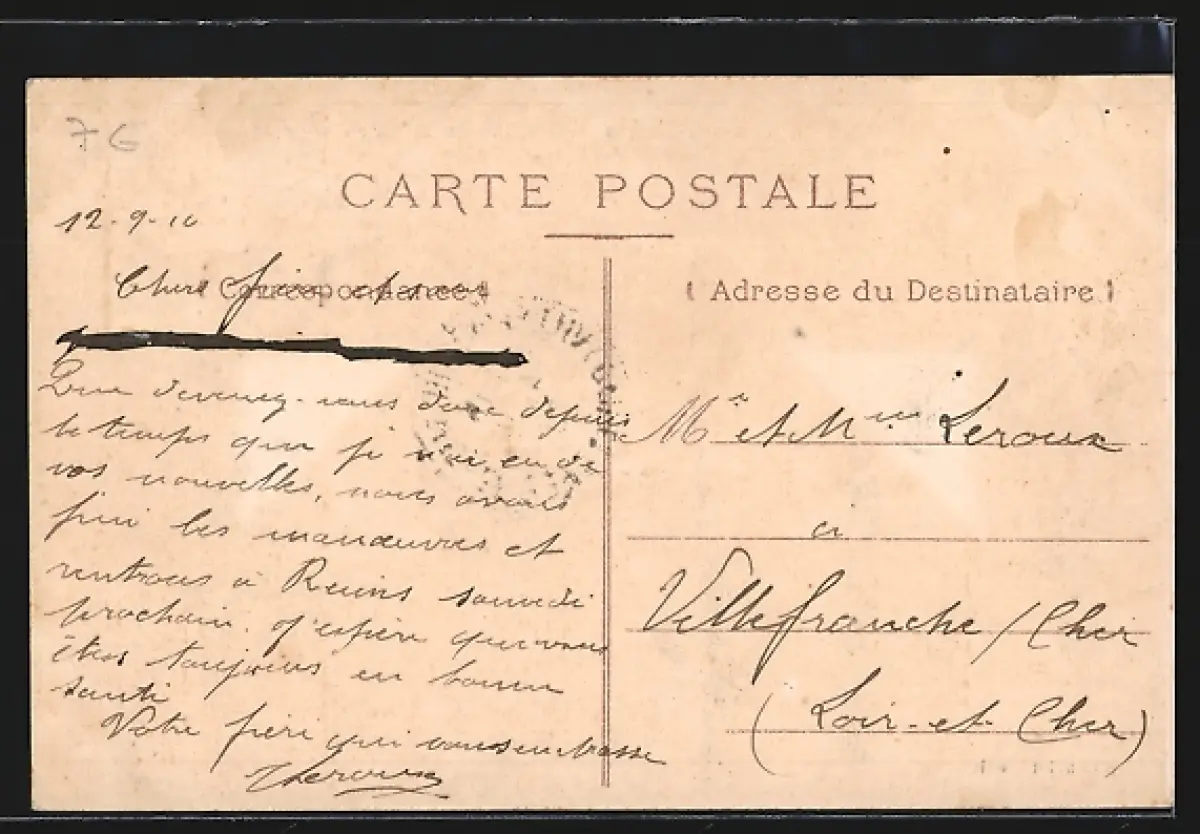 7 G
CARTE POSTALE
12-9-10
Correspondance
Chers frère et sœur
Que devenez-vous donc depuis
le temps que j'ai eu de
vos nouvelles, nous avons
fini les manœuvres et
rentrons à Reims samedi
prochain. J'espère que vous
êtes toujours en bonne
santé
Votre frère qui vous embrasse
Leroux
( Adresse du Destinataire )
Mr et Mme Leroux
à
Villefranche / Cher
(Loir-et-Cher)